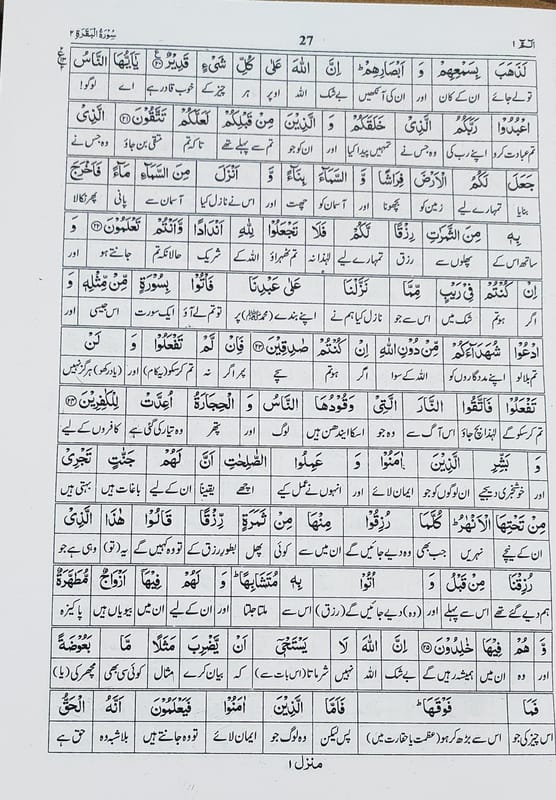 الٓمّٓ ١ 27 سُوْرَةُ الْبَقَرَةِ ٢
لَذَهَبَ بِسَمْعِهِمْ وَ اَبْصَارِهِمْ ؕ اِنَّ اللّٰهَ عَلٰی كُلِّ شَیْءٍ قَدِیْرٌ ﴿۲۰﴾ یٰۤاَیُّهَا النَّاسُ
تو لے جائے ان کے کان اور ان کی آنکھیں بے شک اللہ اوپر ہر چیز کے خوب قادر ہے اے لوگو!
اعْبُدُوْا رَبَّكُمُ الَّذِیْ خَلَقَكُمْ وَ الَّذِیْنَ مِنْ قَبْلِكُمْ لَعَلَّكُمْ تَتَّقُوْنَ ﴿۲۱﴾ الَّذِیْ
تم عبادت کرو اپنے رب کی وہ جس نے تمہیں پیدا کیا اور ان کو جو تم سے پہلے تھے تاکہ تم متقی بن جاؤ وہ جس نے
جَعَلَ لَكُمُ الْاَرْضَ فِرَاشًا وَّ السَّمَآءَ بِنَآءً وَّ اَنْزَلَ مِنَ السَّمَآءِ مَآءً فَاَخْرَجَ
بنایا تمہارے لیے زمین کو بچھونا اور آسمان کو چھت اور اس نے نازل کیا آسمان سے پانی پھر نکالا
بِهٖ مِنَ الثَّمَرٰتِ رِزْقًا لَّكُمْ فَلَا تَجْعَلُوْا لِلّٰهِ اَنْدَادًا وَّاَنْتُمْ تَعْلَمُوْنَ ﴿۲۲﴾ وَ
ساتھ اس کے پھلوں سے رزق تمہارے لیے لہٰذا نہ تم ٹھہراؤ اللہ کے شریک حالانکہ تم جانتے ہو اور
اِنْ كُنْتُمْ فِیْ رَیْبٍ مِّمَّا نَزَّلْنَا عَلٰی عَبْدِنَا فَاْتُوْا بِسُوْرَةٍ مِّنْ مِّثْلِهٖ وَ
اگر ہو تم شک میں اس سے جو نازل کیا ہم نے اپنے بندے (محمد ﷺ) پر تو تم لے آؤ ایک سورت اس جیسی اور
ادْعُوْا شُهَدَآءَكُمْ مِّنْ دُوْنِ اللّٰهِ اِنْ كُنْتُمْ صٰدِقِیْنَ ﴿۲۳﴾ فَاِنْ لَّمْ تَفْعَلُوْا وَ لَنْ
تم بلا لو اپنے مددگاروں کو اللہ کے سوا اگر ہو تم سچے پھر اگر نہ تم کر سکو (یہ کام) اور (یاد رکھو) ہرگز نہیں
تَفْعَلُوْا فَاتَّقُوا النَّارَ الَّتِیْ وَقُوْدُهَا النَّاسُ وَ الْحِجَارَةُ اُعِدَّتْ لِلْكٰفِرِیْنَ ﴿۲۴﴾
تم کر سکو گے لہٰذا بچ جاؤ اس آگ سے وہ جو اسکا ایندھن ہیں لوگ اور پتھر وہ تیار کی گئی ہے کافروں کے لیے
وَ بَشِّرِ الَّذِیْنَ اٰمَنُوْا وَ عَمِلُوا الصّٰلِحٰتِ اَنَّ لَهُمْ جَنّٰتٍ تَجْرِیْ
اور خوشخبری دیجیے ان لوگوں کو جو ایمان لائے اور انہوں نے عمل کیے اچھے یقیناً ان کے لیے باغات ہیں بہتی ہیں
مِنْ تَحْتِهَا الْاَنْهٰرُ ؕ كُلَّمَا رُزِقُوْا مِنْهَا مِنْ ثَمَرَةٍ رِّزْقًا قَالُوْا هٰذَا الَّذِیْ
ان کے نیچے نہریں جب بھی وہ دیے جائیں گے ان میں سے کوئی پھل بطور رزق کے تو وہ کہیں گے یہ (تو) وہی ہے جو
رُزِقْنَا مِنْ قَبْلُ وَ اُتُوْا بِهٖ مُتَشَابِهًا ؕ وَ لَهُمْ فِیْهَاۤ اَزْوَاجٌ مُّطَهَّرَةٌ
ہم دیے گئے تھے اس سے پہلے اور (وہ) دیے جائیں گے (رزق) اس سے ملتا جلتا اور ان کے لیے ان میں بیویاں ہیں پاکیزہ
وَّ هُمْ فِیْهَا خٰلِدُوْنَ ﴿۲۵﴾ اِنَّ اللّٰهَ لَا یَسْتَحْیٖۤ اَنْ یَّضْرِبَ مَثَلًا مَّا بَعُوْضَةً
اور وہ ان میں ہمیشہ رہیں گے بے شک اللہ نہیں شرماتا (اس بات سے) کہ بیان کرے مثال کوئی سی بھی مچھر کی (یا)
فَمَا فَوْقَهَا ؕ فَاَمَّا الَّذِیْنَ اٰمَنُوْا فَیَعْلَمُوْنَ اَنَّهُ الْحَقُّ
اس چیز کی جو اس سے بڑھ کر ہو (عظمت یا حقارت میں) پس لیکن وہ لوگ جو ایمان لائے تو وہ جانتے ہیں بلاشبہ وہ حق ہے
منزل ١